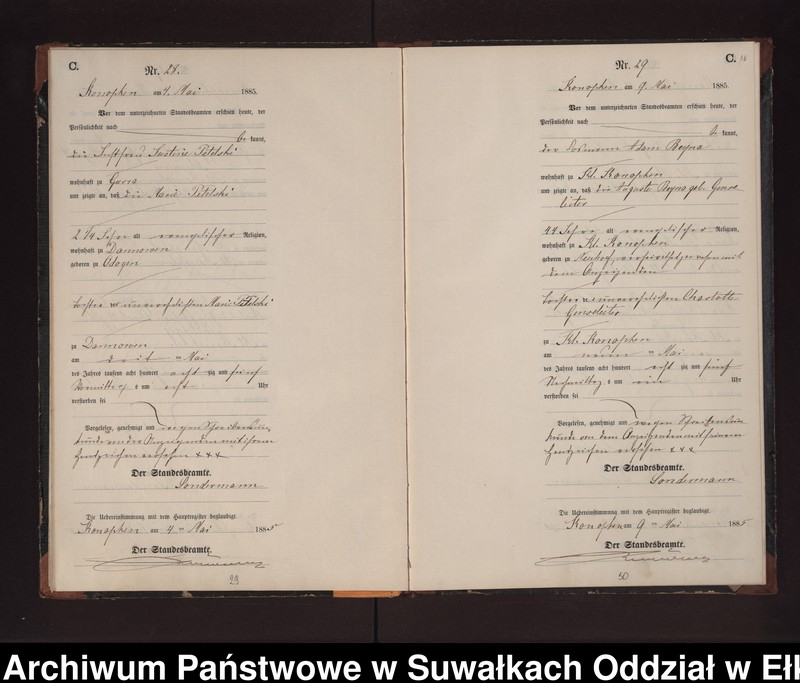 C.
Nr. 28.
Konopken am 4. Mai 1885.
Vor dem unterzeichneten Standesbeamten erschien heute, der
Persönlichkeit nach
be kannt,
die Tetelski
wohnhaft zu Gorra
und zeigte an, daß die Marie Tetelski
2 1/4 Jahre alt evangelischer Religion,
wohnhaft zu Dannowen
geboren zu Odoyen
Tochter der unverehelichten Marie Tetelski
zu Dannowen
am drei ten Mai
des Jahres tausend acht hundert acht zig und fünf
Vormittags um acht Uhr
verstorben sei
Vorgelesen, genehmigt und wegen Schreibensun
kunde von der Anzeigenden mit ihrem
Handzeichen versehen + + +
Der Standesbeamte.
Sondermann
Die Uebereinstimmung mit dem Hauptregister beglaubigt.
Konopken am 4 ten Mai 1885
Der Standesbeamte.
29
C.
Nr. 29
Konopken am 9. Mai 1885.
Vor dem unterzeichneten Standesbeamten erschien heute, der
Persönlichkeit nach
be kannt,
der Losmann Adam Boyna
wohnhaft zu Kl. Konopken
und zeigte an, daß die Auguste Boyna geb.
44 Jahre alt evangelischer Religion,
wohnhaft zu Kl. Konopken
geboren zu Neuhof, verheirathet gewesen mit
dem Anzeigenden
Tochter der unverehelichten Charlotte
zu Kl. Konopken
am neun ten Mai
des Jahres tausend acht hundert acht zig und fünf
Nachmittags um ein Uhr
verstorben sei
Vorgelesen, genehmigt und wegen Schreibensun
kunde von dem Anzeigenden mit seinem
Handzeichen versehen + + +
Der Standesbeamte.
Sondermann
Die Uebereinstimmung mit dem Hauptregister beglaubigt.
Konopken am 9 ten Mai 1885
Der Standesbeamte.
30
Archiwum Państwowe w Suwałkach Oddział w Ełk